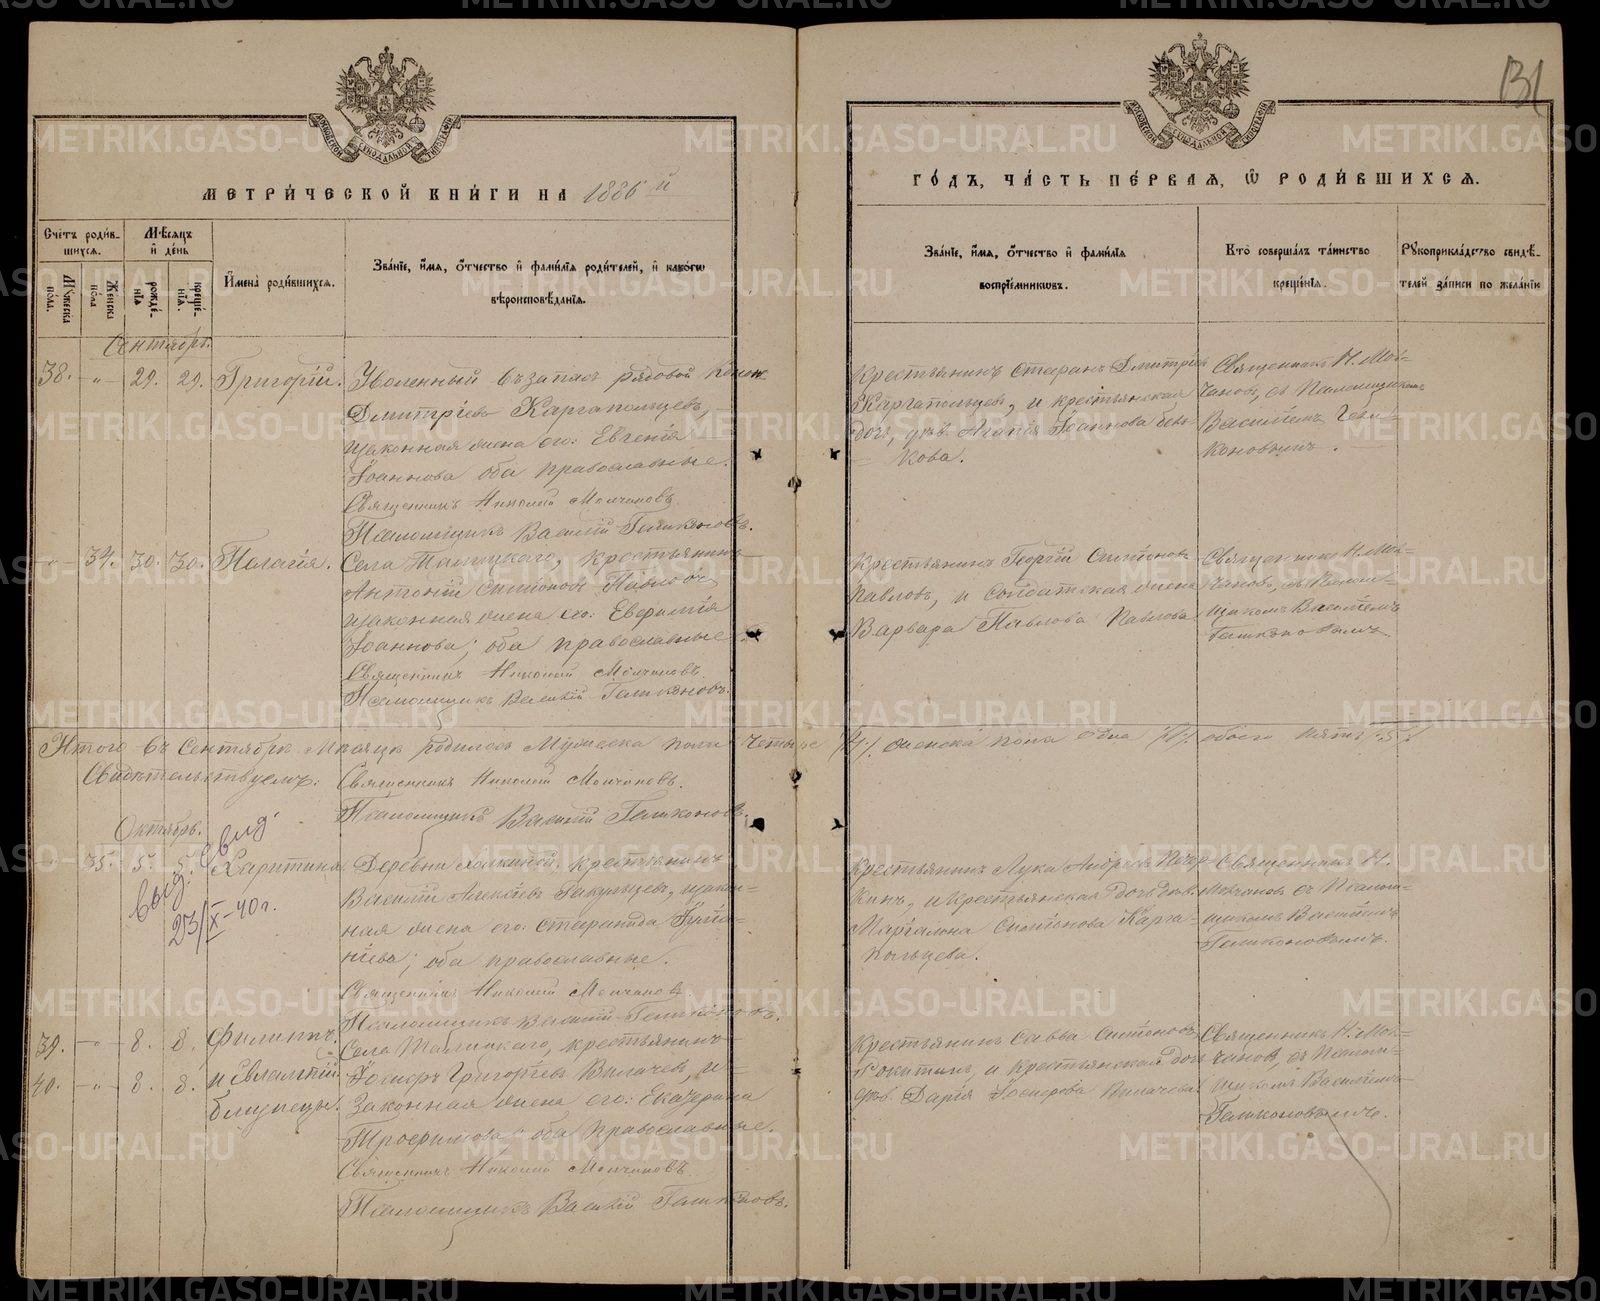 131
МЕТРИ́ЧЕСКОЙ КНИ́ГИ НА 1886й
ГО́ДЪ, ЧА́СТЬ ПЕ́РВАЯ, Ѡ҆ РОДИ́ВШИХСЯ.
Сче́тъ роди́в-
шихся.
Мѣ́сяцъ
и҆ де́нь
Му́жеска по́ла.
Же́нска по́ла
рожде́-
нїѧ
креще́-
нїѧ.
И҆мена̀ роди́вшихся.
Зва́нїе, и҆́мя, ѻ҆́тчество и҆ фами́лїя роди́телей, и҆ како́гѡ
вѣроисповѣ́данїя.
Зва́нїе, и҆́мя, ѻ҆́тчество и҆ фами́лїя
воспрїе́мникѡвъ.
Кто̀ соверша́лъ та́инство
креще́нїя.
Рꙋкоприкла́дство свидѣ́-
телей за́писи по жела́нїю
Сентябрь.
38. „ 29. 29. Григорій.
Уволенный въ запасъ рядовой
Дмитріевъ Каргапольцевъ,
и законная жена его: Евгенія
Іоаннова оба православные.
Священникъ Николай Молчановъ.
Псаломщикъ Василій Гашконовъ.
Крестьянинъ Стефанъ Дмитріев
Каргапольцевъ, и крестьянская
дочь, дѣв. Агапія Іоаннова
кова.
Священникъ Н. Мол-
чановъ, съ Псаломщикомъ
Василіемъ Гаш-
коновымъ.
„ 34. 30. 30. Пелагія.
Села Талицкаго, крестьянинъ
Антоній Симіоновъ Павловъ
и законная жена его: Евфимія
Іоаннова; оба православные.
Священникъ Николай Молчановъ.
Псаломщикъ Василій Гашконовъ.
Крестьянинъ Георгій Симіоновъ
Павловъ, и солдатская жена
Варвара Павлова Павлова.
Священникъ Н. Мол-
чановъ, съ Псалом-
щикомъ Василіемъ
Гашконовымъ.
Итого въ Сентябрѣ Мѣсяцѣ родилось Мужеска пола четыре /4/, женска пола одна /1/, обоего пять /5/
Свидѣтельствуемъ: Священникъ Николай Молчановъ.
Псаломщикъ Василій Гашконовъ.
Октябрь.
Выд. свид.
23/X-40 г.
35. 5. 5. Харитина.
Деревни крестьянинъ
Василій Алексіевъ и закон-
ная жена его: Стефанида
оба православные.
Священникъ Николай Молчановъ
Псаломщикъ Василій Гашконовъ.
Крестьянинъ Лука Андреевъ
кинъ, и крестьянская дочь дѣв.
Симіонова Карга-
польцева.
Священникъ Н.
Молчановъ съ Псалом-
щикомъ Василіемъ
Гашконовымъ.
39. „ 8. 8. Филиппъ
40. „ 8. 8. и Евлампій
близнецы.
Села Талицкаго, крестьянинъ
Іосифъ Григоріевъ Вилачевъ, и
законная жена его: Екатерина
Трофимова оба православные.
Священникъ Николай Молчановъ
Псаломщикъ Василій Гашконовъ.
Крестьянинъ Савва Симіоновъ
и крестьянская дочь
дѣв. Дарія Іосифова Вилачева.
Священникъ Н. Мол-
чановъ, съ Псалом-
щикомъ Василіемъ
Гашконовымъ.
METRIKI.GASO-URAL.RU